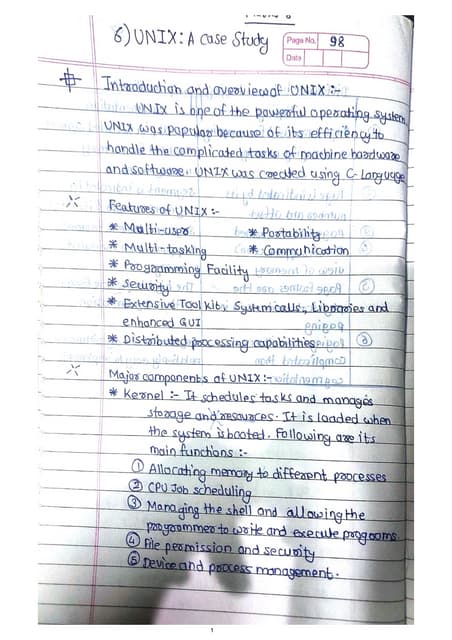 6) UNIX: A case Study
Page No. 98
Date
Introduction and overview of UNIX :-
UNIX is one of the powerful operating system
UNIX was popular because of its efficiency to
handle the complicated tasks of machine hardware
and software. UNIX was created using C-Language
Features of UNIX :-
* Multi-user * Portability
* Multi-tasking * Communication
* Programming Facility
* Security
* Extensive Tool kit, System calls, Libraries and
enhanced GUI
* Distributed processing capabilities
Major components of UNIX :-
* Kernel :- It schedules tasks and manages
storage and resources. It is loaded when
the system is booted. Following are its
main functions :-
① Allocating memory to different processes
② CPU Job scheduling
③ Managing the shell and allowing the
programmer to write and execute programs
④ File permission and security
⑤ Device and process management.
1